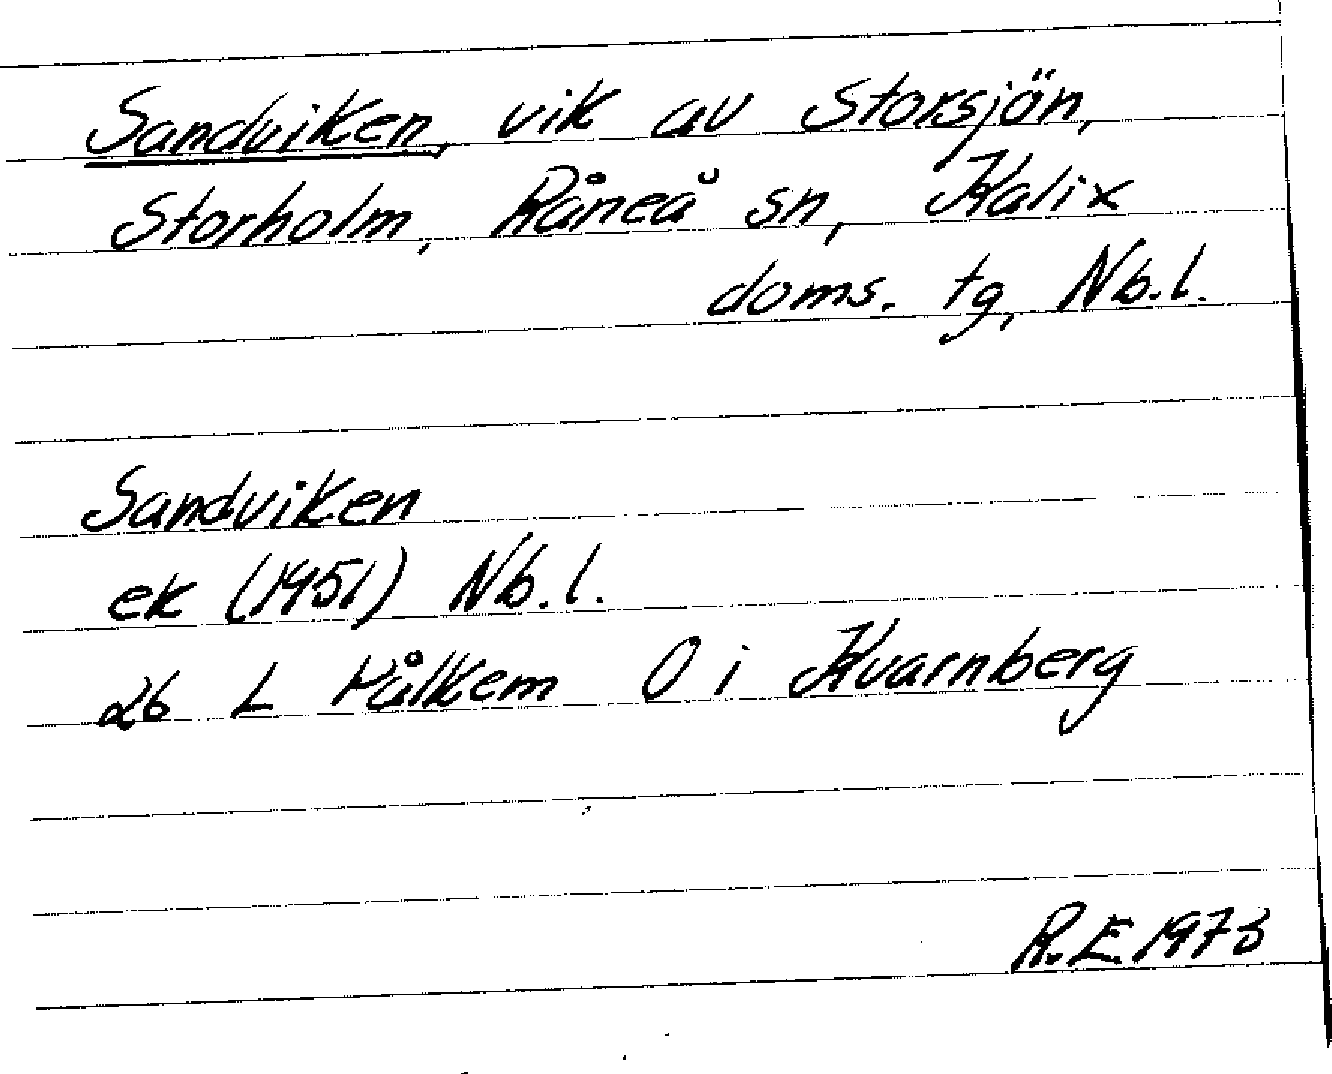 Sandviken, vik av Storsjön,
Storholm, Råneå sn, Kalix
doms. tg, Nb.l.
Sandviken
ek (1951) Nb.l.
26 L Pålkem O i Kvarnberg
R.E. 1973